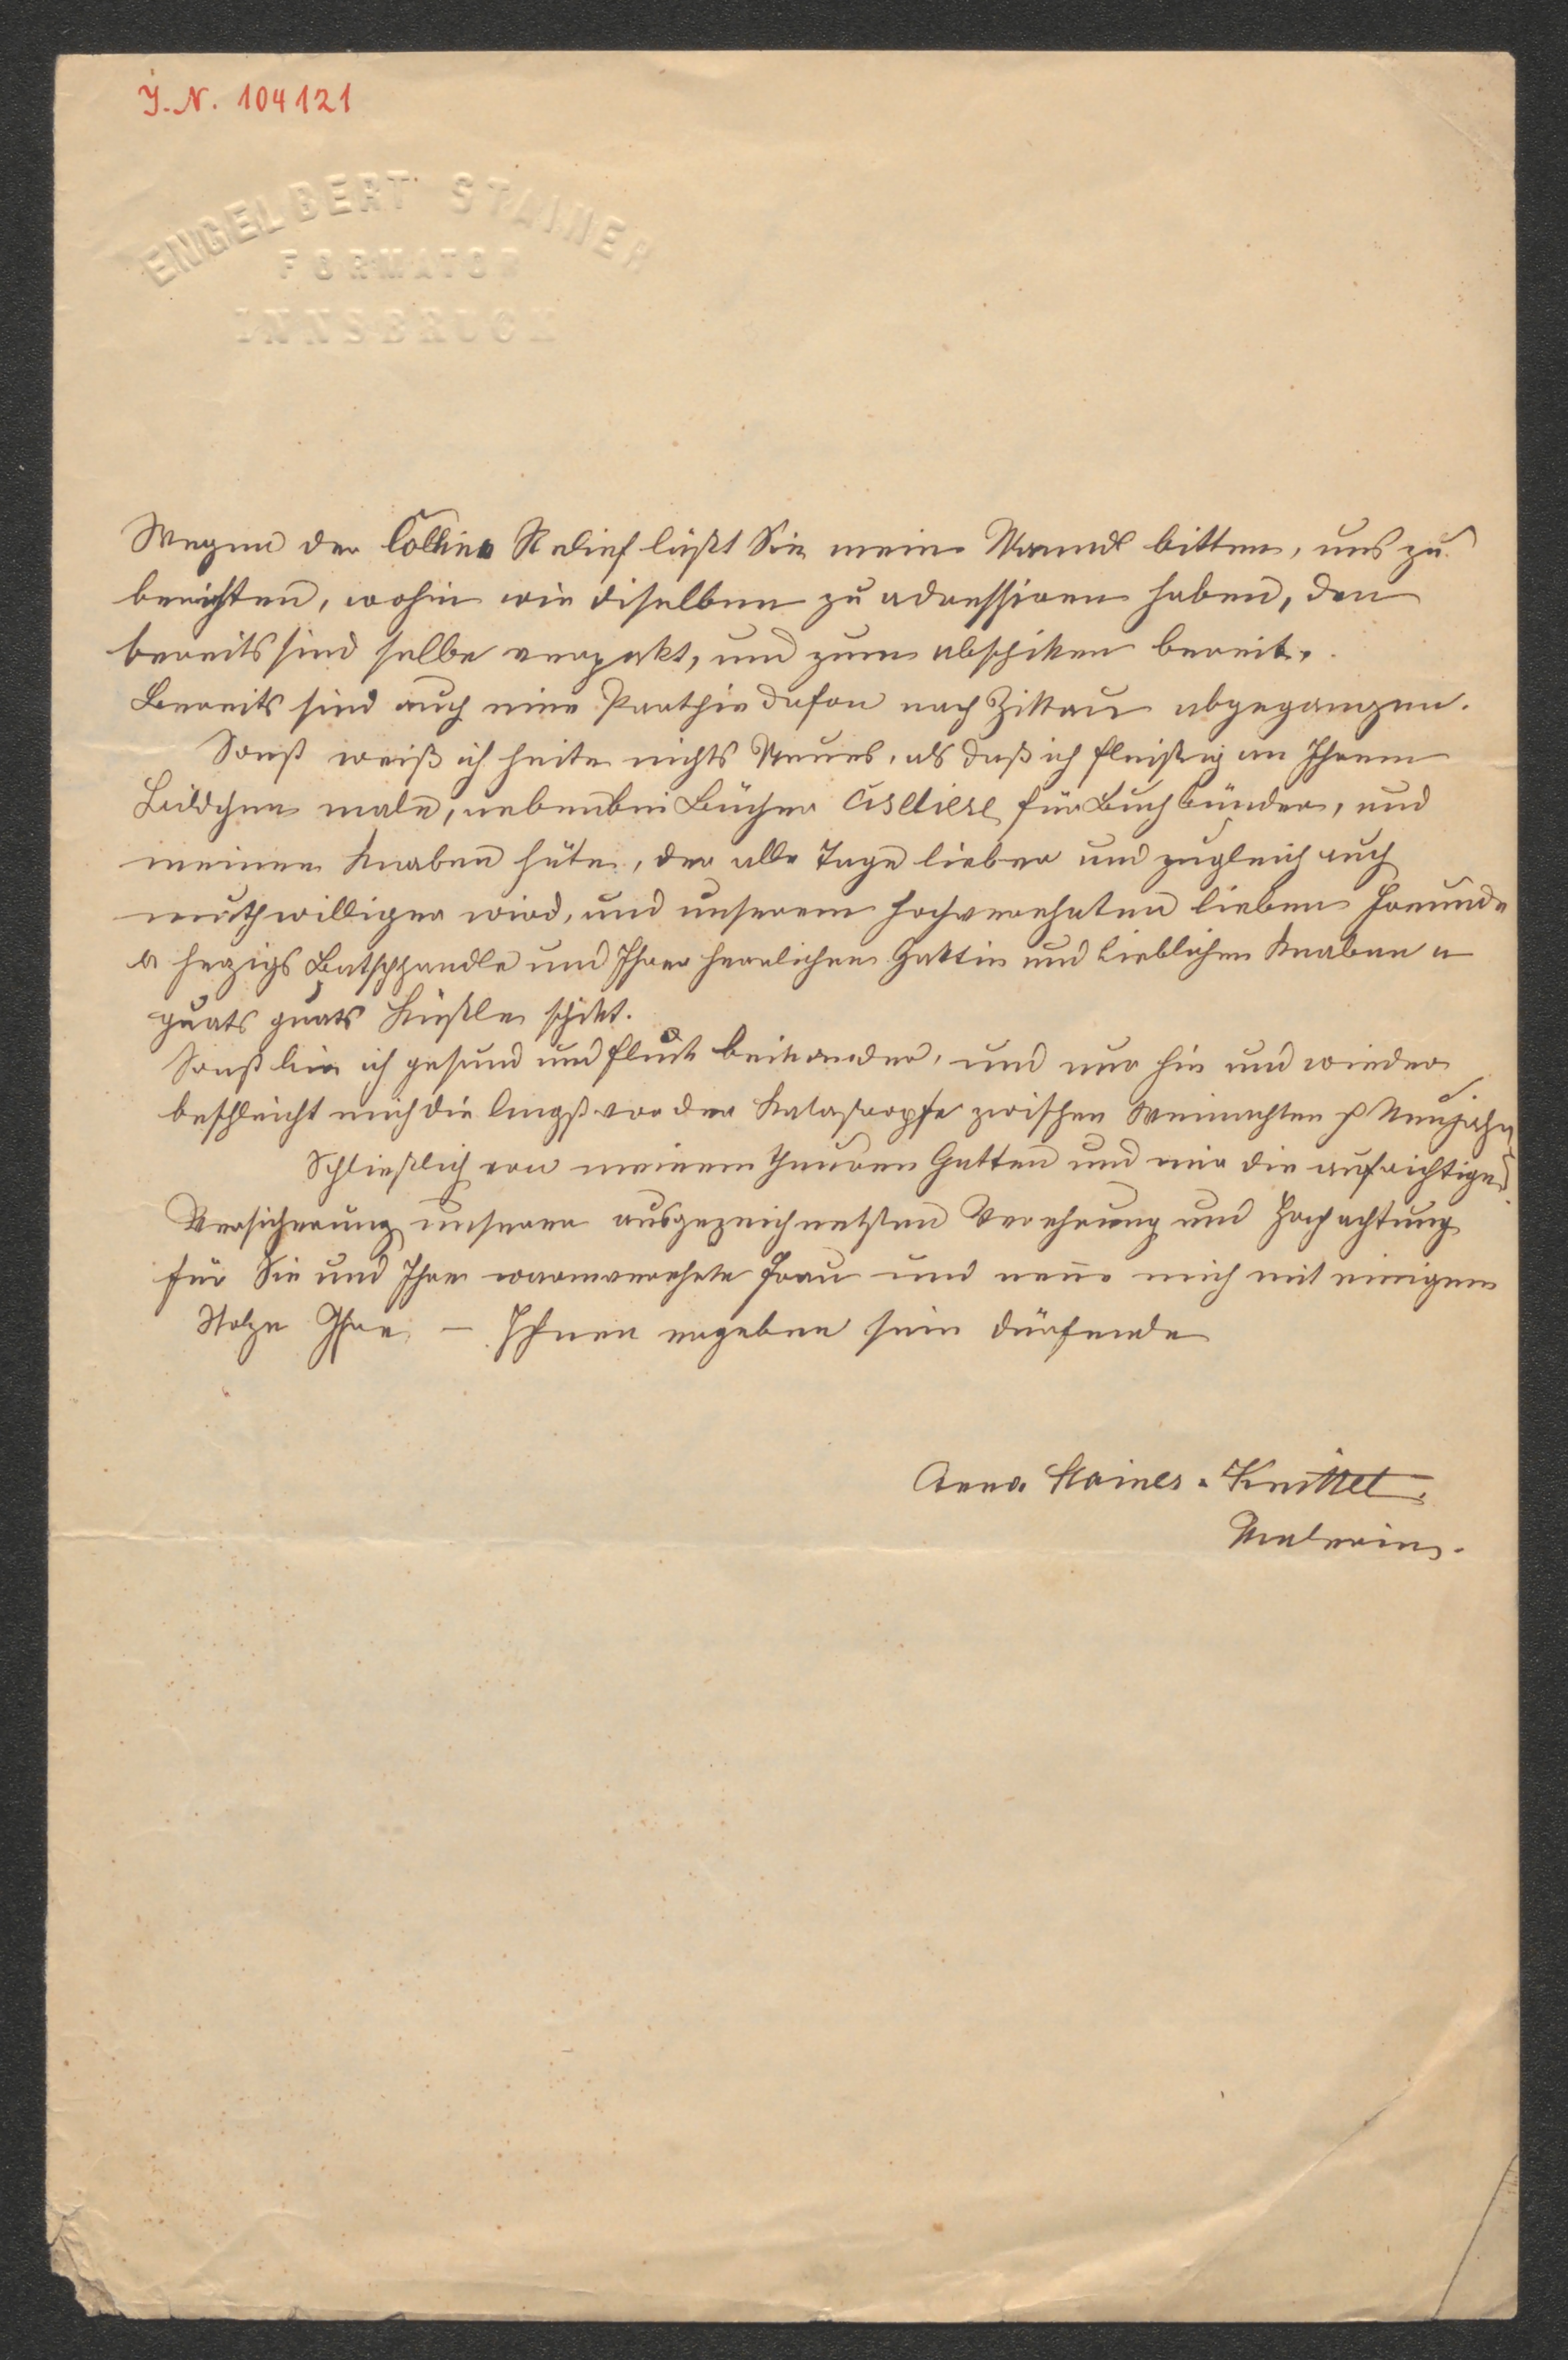 I.N. 104121
ENGELBERT STAINER
FORMATOR
INNSBRUCK
Wegen der Collin Relief läßt Sie mein Mannds bitten, uns zu
berichten, wohin wir diselben zu adressiren haben, den
bereits sind selbe verpakt, und zum abschiken bereit.
Bereits sind auch eine Parthie dafon nach Zittau abgegangen.
Sonst weiß ich heite nichts Neues, als daß ich fleißig an Ihrem
Bildchen male, nebenbei Bücher ciseliere für Buchbünder, und
meinen Knaben hüte, der alle Tage lieber und zugleich auch
muthwilliger wird, und unserem hochverehrten lieben Freunde
a herzigs Batschhandle und Ihrer herrlichen Gattin und lieblichen Knaben a
guats guats Küßle schikt.
Sonst bin ich gesund und flink beinander, und nur hin und wieder
beschleicht mich die Angst vor der Katastropfe zwischen Weinachten & Neujahr
Schließlich von meinem theuren Gatten und mir die aufrichtige
Versicherung unserer ausgezeichnetsten Verehrung und Hochachtung
für Sie und Ihre warmverehrte Frau und nene mich mit einigem
Stolze Ihre – Ihnen ergeben sein dürfende
Anna Stainer-Knittel,
Malerin.